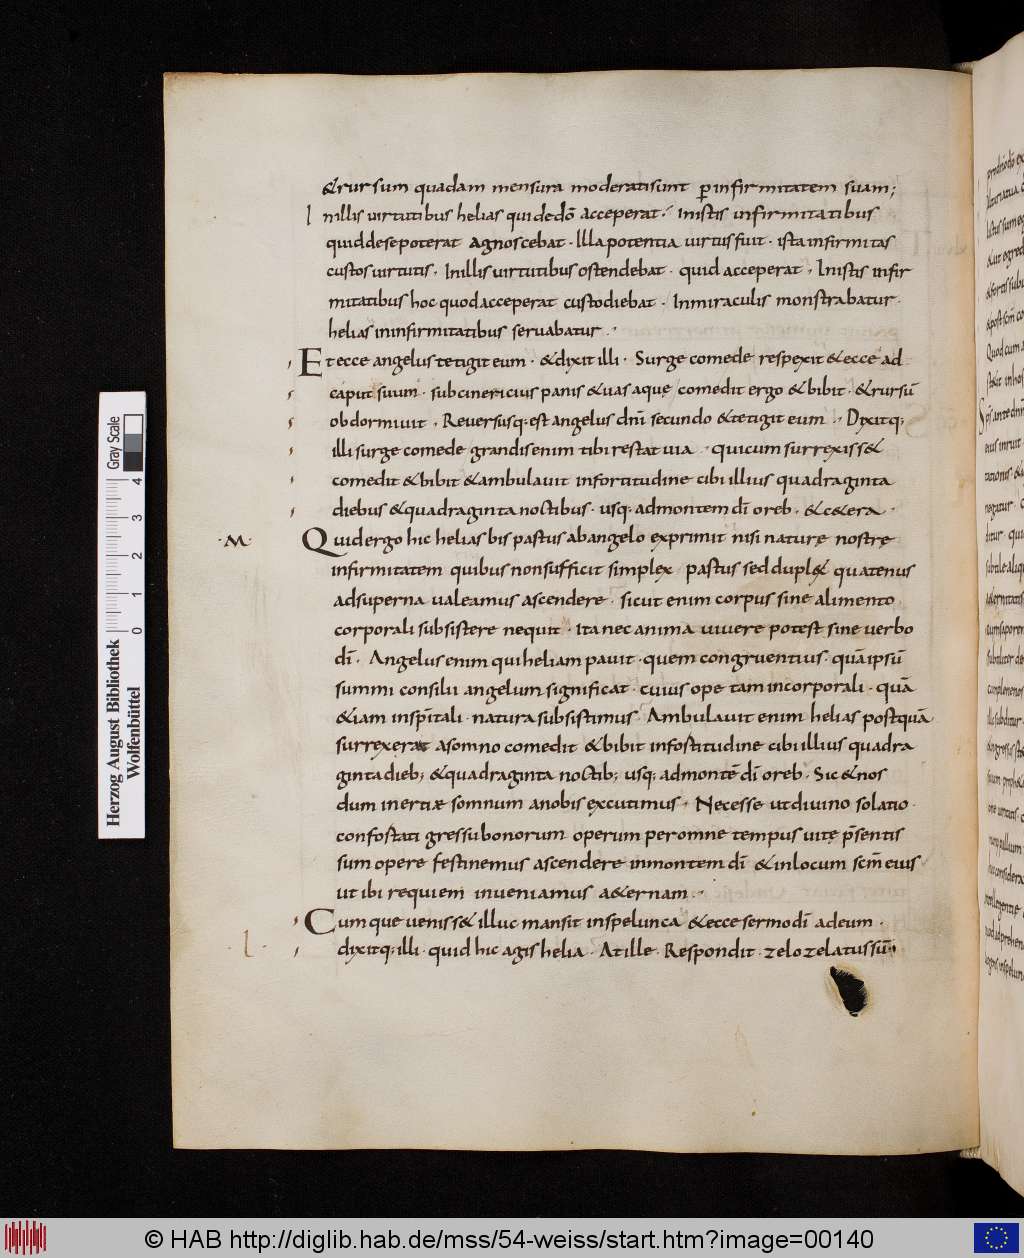 &rursum quadam mensura moderatisunt p̱infirmitatem suam;
Inillis uirtutibus helias quidedō acceperat. Inistis infirmitatibus
quiddesepoterat agnoscebat. Illapotentia uirtus fuit. istainfirmitas
custosuirtutis. Inillis uirtutibus ostendebat. quid acceperat. Inistis infir
mitatibus hoc quodacceperat custodiebat. Inmiraculis monstrabatur.
helias ininfirmitatibus seruabatur.
Et ecce angelus tetigit eum. &dixit illi. Surge comede respexit &ecce ad
caput suum. subcinericius panis &uas aquę comedit ergo &bibit. &rursū
obdormiuit. Reuersusq; est angelus dn̄i secundo &tetigit eum. Dixitq;
illi surge comede grandisenim tibi restat uia. quicum surrexiss&
comedit &bibit &ambulauit infortitudine cibi illius quadraginta
diebus &quadraginta noctibus. usq; admontem dī oreb. &c&era.
·M· Quidergo hic helias bis pastus abangelo exprimit nisi naturę nostrę
infirmitatem quibus nonsufficit simplex pastus sed dupl&x quatenus
adsuperna ualeamus ascendere. sicut enim corpus sine alimento
corporali subsistere nequit. Ita nec anima uiuere potest sine uerbo
dī. Angelus enim quiheliam pauit. quem congruentius. quāipsū
summi consilii angelum significat. cuius ope tam incorporali. quā
&iam insp̄itali. natura subsistimus. Ambulauit enim helias postquā
surrexerat asomno comedit &bibit infortitudine cibi illius quadra
ginta dieb; &quadraginta noctib; usq; admontē dī oreb. Sic &nos
dum inertiæ somnum anobis excutimus. Necesse ut diuino solatio.
confortati gressu bonorum operum per omne tempus uitę p̄sentis
sum opere festinemus ascendere inmontem dī &inlocum scm̄ eius
ut ibi requiem inueniamus a&ernam.
Cum que ueniss& illuc mansit inspelunca &ecce sermo dī adeum.
·l· dixitq; illi. quid hic agis helia. At ille. Respondit. zelo zelatus sū
Herzog August Bibliothek
Wolfenbüttel
Gray Scale
0 1 2 3 4
© HAB http://diglib.hab.de/mss/54-weiss/start.htm?image=00140